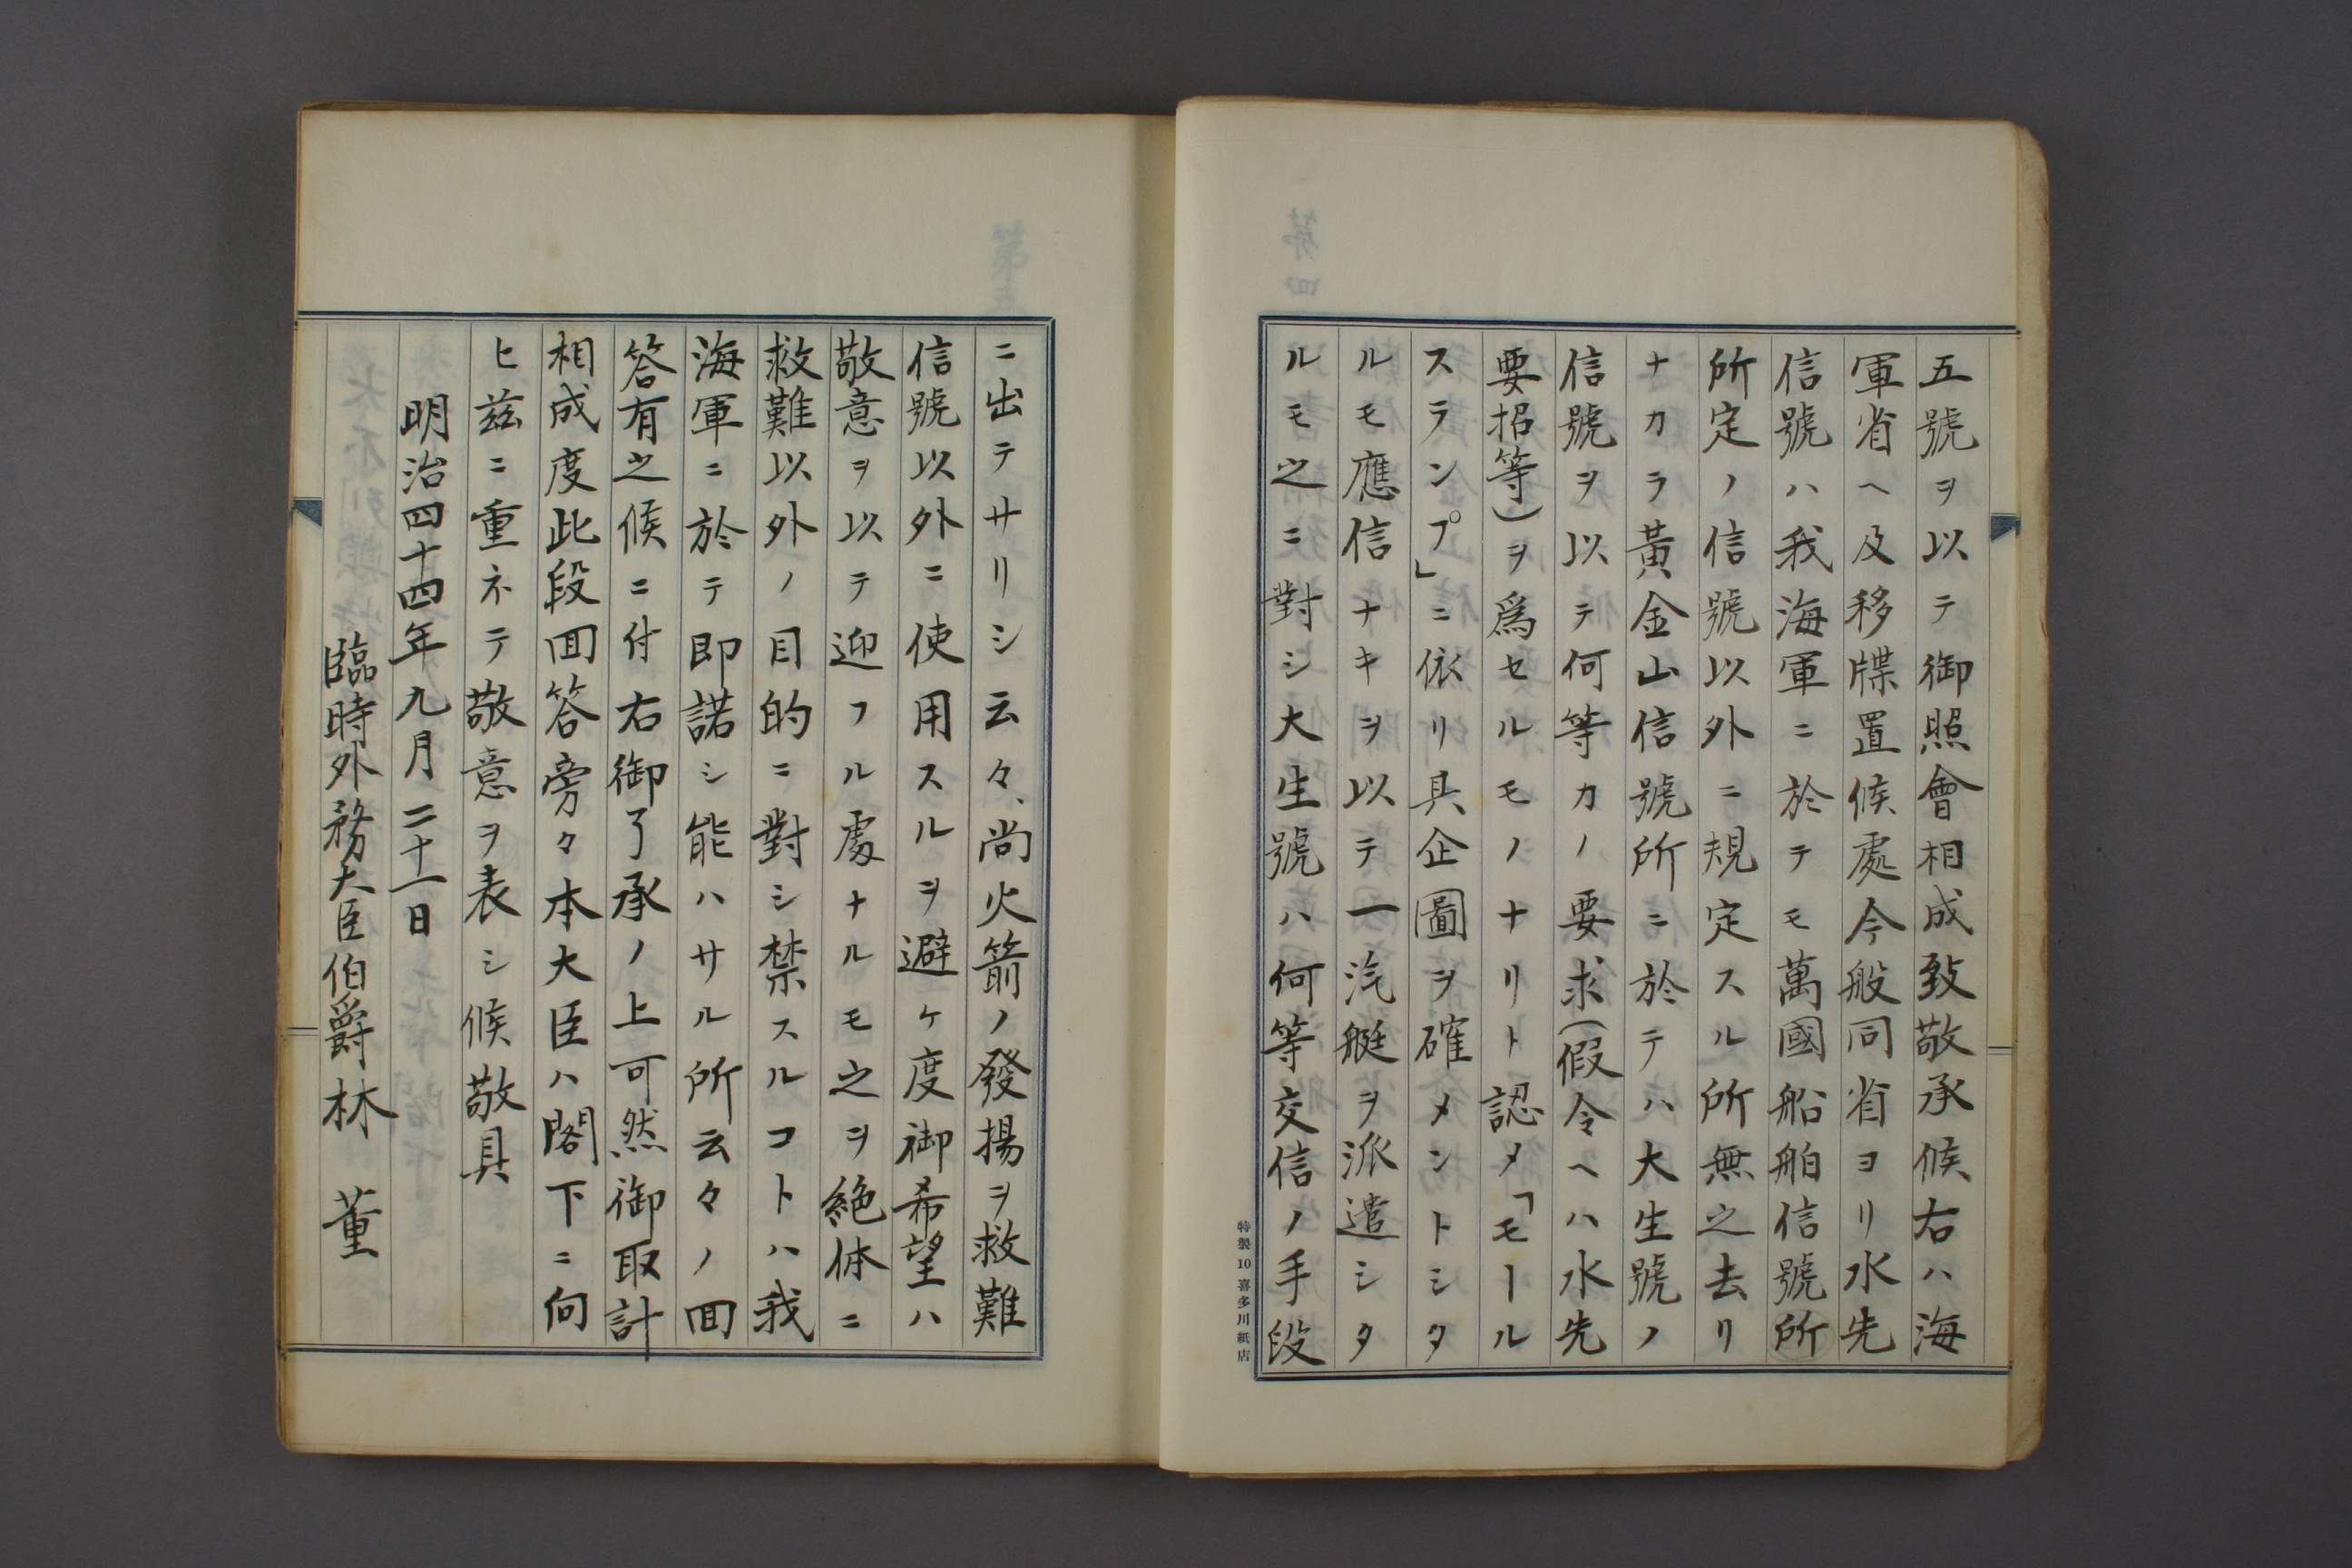 五號ヲ以テ御照會相成致敬承候右ハ海
軍省ヘ及移牒置候處今般同省ヨリ水先
信號ハ我海軍ニ於テモ萬國船舶信號所
所定ノ信號以外ニ規定スル所無之去リ
ナカラ黃金山信號所ニ於テハ大生號ノ
信號ヲ以テ何等カノ要求(假令ヘハ水先
要招等)ヲ爲セルモノナリト認メ「モール
スランプ」ニ依リ具企圖ヲ確メントシタ
ルモ應信ナキヲ以テ一汽艇ヲ派遣シタ
ルモ之ニ對シ大生號ハ何等交信ノ手段
特製10喜多川紙店
ニ出テサリシ云々、尚火箭ノ發揚ヲ救難
信號以外ニ使用スルヲ避ケ度御希望ハ
敬意ヲ以テ迎フル處ナルモ之ヲ絶体ニ
救難以外ノ目的ニ對シ禁スルコトハ我
海軍ニ於テ即諾シ能ハサル所云々ノ回
答有之候ニ付右御了承ノ上可然御取計
相成度此段回答旁々本大臣ハ閣下ニ向
ヒ茲ニ重ネテ敬意ヲ表シ候敬具
明治四十四年九月二十一日
臨時外務大臣伯爵林 董